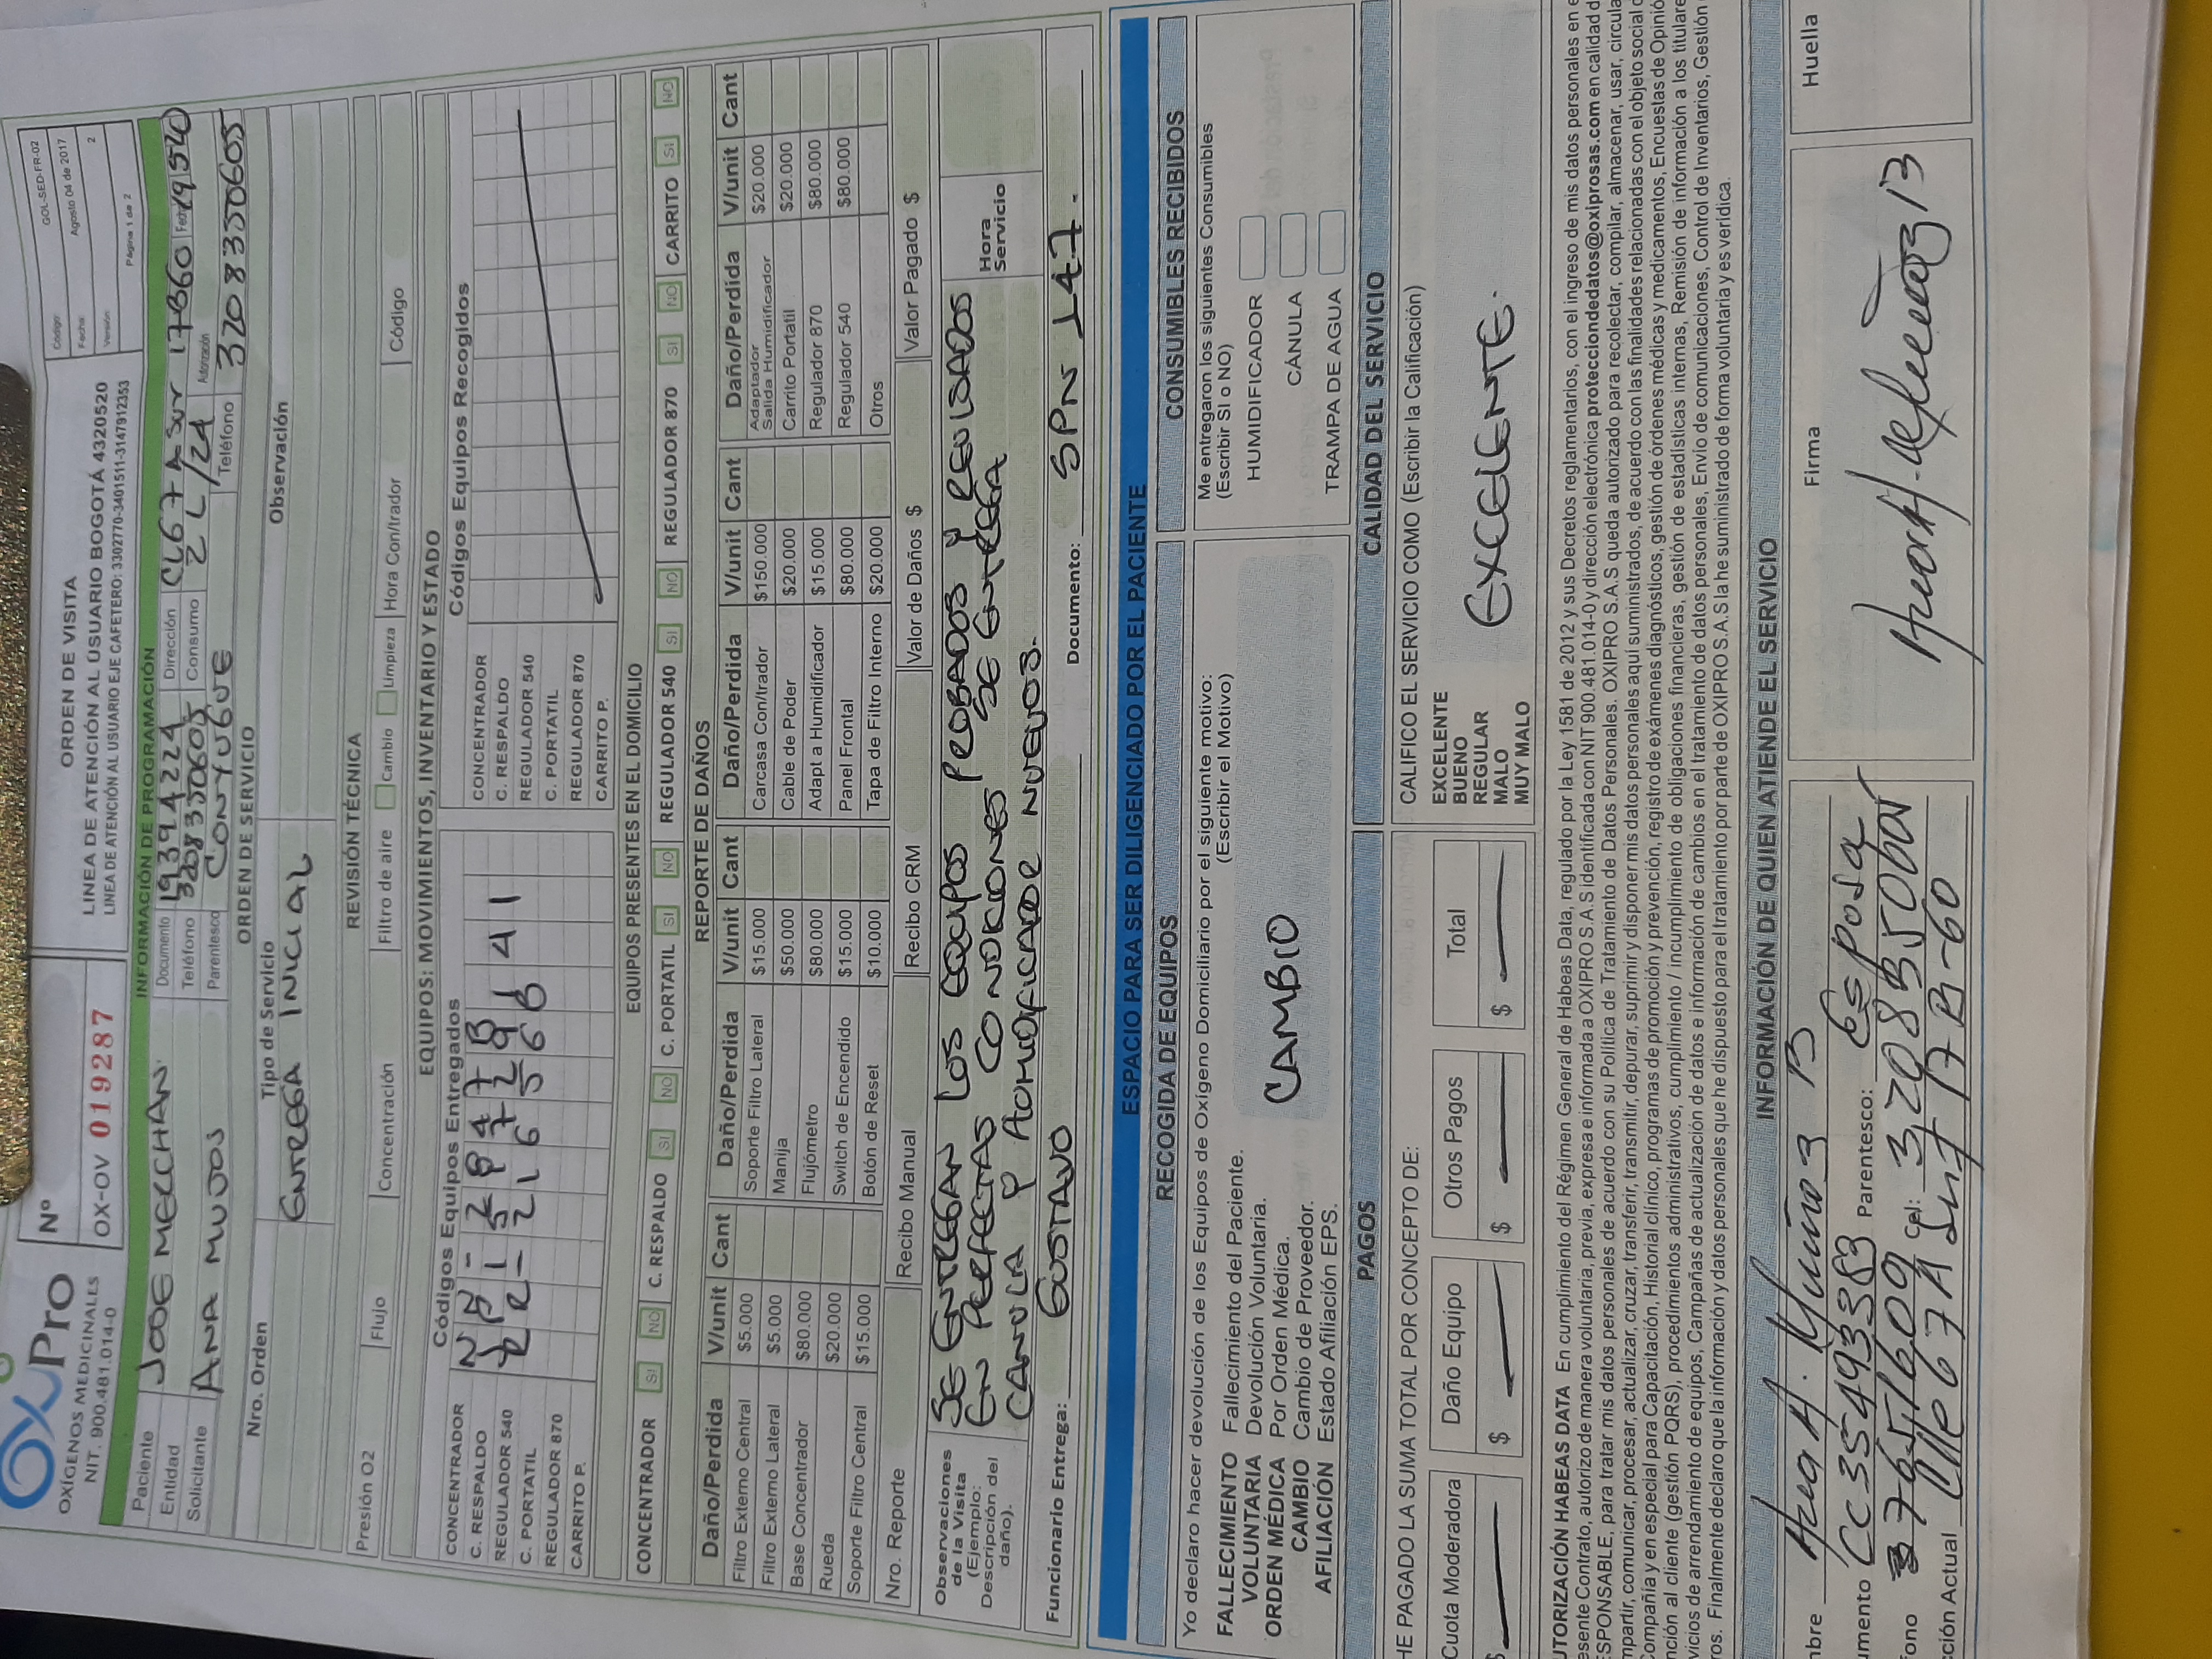 OXÍPro
OXÍGENOS MEDICINALES
NIT. 900.481.014-0
Nº
OX-OV 019287
ORDEN DE VISITA
LINEA DE ATENCIÓN AL USUARIO BOGOTÁ 4320520
LINEA DE ATENCIÓN AL USUARIO EJE CAFETERO: 3302770-3401511-3147912353
Código: GOL-SED-FR-02
Fecha: Agosto 04 de 2017
Versión: 2
Página 1 de 2
INFORMACIÓN DE PROGRAMACIÓN
Paciente JOSE MECCHAN Documento 19394224 Dirección CL67 A SUR 17B60 Fecha
Entidad Teléfono 3208350605 Consumo 2L/24 Autorización
Solicitante ANA MUÑOS Parentesco CONYUGUE Teléfono 3208350605
ORDEN DE SERVICIO
Nro. Orden Tipo de Servicio Observación
ENTREGA INICIAL
REVISIÓN TÉCNICA
Presión O2 Flujo Concentración Filtro de aire Cambio Limpieza Hora Con/trador Código
EQUIPOS: MOVIMIENTOS, INVENTARIO Y ESTADO
Códigos Equipos Entregados Códigos Equipos Recogidos
CONCENTRADOR CONCENTRADOR
C. RESPALDO C. RESPALDO
REGULADOR 540 REGULADOR 540
C. PORTATIL C. PORTATIL
REGULADOR 870 REGULADOR 870
CARRITO P. CARRITO P.
EQUIPOS PRESENTES EN EL DOMICILIO
CONCENTRADOR SI NO C. RESPALDO SI NO C. PORTATIL SI NO REGULADOR 540 SI NO REGULADOR 870 SI NO CARRITO SI NO
REPORTE DE DAÑOS
Daño/Perdida V/unit Cant Daño/Perdida V/unit Cant Daño/Perdida V/unit Cant Daño/Perdida V/unit Cant
Filtro Externo Central $5.000 Soporte Filtro Lateral $15.000 Carcasa Con/trador $150.000 Adaptador Salida Humidificador $20.000
Filtro Externo Lateral $5.000 Manija $50.000 Cable de Poder $20.000 Carrito Portatil $20.000
Base Concentrador $80.000 Flujómetro $80.000 Adapt a Humidificador $15.000 Regulador 870 $80.000
Rueda $20.000 Switch de Encendido $15.000 Panel Frontal $80.000 Regulador 540 $80.000
Soporte Filtro Central $15.000 Botón de Reset $10.000 Tapa de Filtro Interno $20.000 Otros
Nro. Reporte Recibo Manual Recibo CRM Valor de Daños $ Valor Pagado $
Observaciones de la Visita (Ejemplo: Descripción del daño).
SE ENTREGAN LOS EQUIPOS PROBADOS Y REVISADOS
EN PERFECTAS CONDICIONES SE ENTREGA
CANULA Y HUMIDIFICADOR NUEVOS.
Hora Servicio
Funcionario Entrega: GUSTAVO Documento: SPN 147.
ESPACIO PARA SER DILIGENCIADO POR EL PACIENTE
RECOGIDA DE EQUIPOS
Yo declaro hacer devolución de los Equipos de Oxígeno Domiciliario por el siguiente motivo:
(Escribir el Motivo)
FALLECIMIENTO Fallecimiento del Paciente.
VOLUNTARIA Devolución Voluntaria.
ORDEN MÉDICA Por Orden Médica.
CAMBIO Cambio de Proveedor.
AFILIACIÓN Estado Afiliación EPS.
CAMBIO
CONSUMIBLES RECIBIDOS
Me entregaron los siguientes Consumibles
(Escribir SI o NO)
HUMIDIFICADOR
CÁNULA
TRAMPA DE AGUA
PAGOS
HE PAGADO LA SUMA TOTAL POR CONCEPTO DE:
Cuota Moderadora Daño Equipo Otros Pagos Total
$ — $ — $ — $ —
CALIDAD DEL SERVICIO
CALIFICO EL SERVICIO COMO (Escribir la Calificación)
EXCELENTE
BUENO
REGULAR
MALO
MUY MALO
EXCELENTE.
UTORIZACIÓN HABEAS DATA En cumplimiento del Régimen General de Habeas Data, regulado por la Ley 1581 de 2012 y sus Decretos reglamentarios, con el ingreso de mis datos personales en e
esente Contrato, autorizo de manera voluntaria, previa, expresa e informada a OXIPRO S.A.S identificada con NIT 900.481.014-0 y dirección electrónica protecciondedatos@oxiprosas.com en calidad d
ESPONSABLE, para tratar mis datos personales de acuerdo con su Política de Tratamiento de Datos Personales. OXIPRO S.A.S queda autorizado para recolectar, compilar, almacenar, usar, circula
mpartir, comunicar, procesar, actualizar, cruzar, transferir, transmitir, depurar, suprimir y disponer mis datos personales aquí suministrados, de acuerdo con las finalidades relacionadas con el objeto social d
Compañía y en especial para Capacitación, Historial clínico, programas de promoción y prevención, registro de exámenes diagnósticos, gestión de órdenes médicas y medicamentos, Encuestas de Opinió
nción al cliente (gestión PQRS), procedimientos administrativos, cumplimiento / incumplimiento de obligaciones financieras, gestión de estadísticas internas, Remisión de información a los titulare
vicios de arrendamiento de equipos, Campañas de actualización de datos e información de cambios en el tratamiento de datos personales, Envío de comunicaciones, Control de Inventarios, Gestión
ros. Finalmente declaro que la información y datos personales que he dispuesto para el tratamiento por parte de OXIPRO S.A.S la he suministrado de forma voluntaria y es verídica.
INFORMACIÓN DE QUIEN ATIENDE EL SERVICIO
mbre Ana H. Muñoz B
umento CC 35493383 Parentesco: Esposa
ono 37651609 Cel:
cción Actual Clle 67 A Sur 17 B-60
Firma
Huella